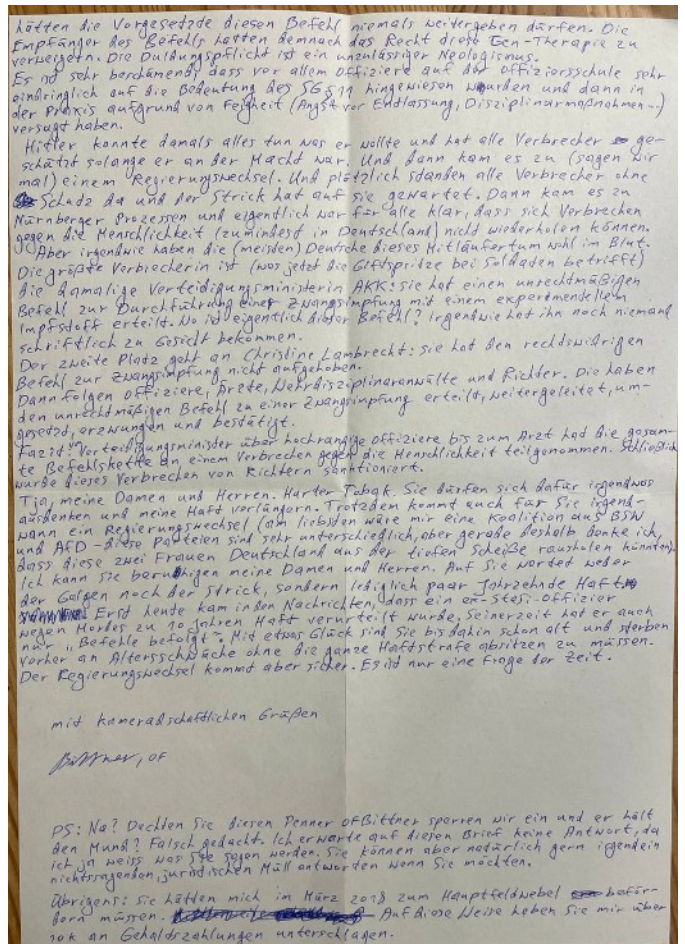 hätten die Vorgesetzte diesen Befehl niemals weitergeben dürfen. Die
Empfänger des Befehls hatten demnach das Recht diese Gen-Therapie zu
verweigern. Die Duldungspflicht ist ein unzulässiger Neologismus.
Es ist sehr beschämend, dass vor allem Offiziere auf der Offiziersschule sehr
eindringlich auf die Bedeutung des SG §11 hingewiesen wurden und dann in
der Praxis aufgrund von Feigheit (Angst vor Entlassung, Disziplinarmaßnahmen...)
versagt haben.
Hitler konnte damals alles tun was er wollte und hat alle Verbrecher ge-
schützt solange er an der Macht war. Und dann kam es zu (sagen wir
mal) einem Regierungswechsel. Und plötzlich standen alle Verbrecher ohne
Schutz da und der Strick hat auf sie gewartet. Dann kam es zu
Nürnberger Prozessen und eigentlich war für alle klar, dass sich Verbrechen
gegen die Menschlichkeit (zumindest in Deutschland) nicht wiederholen können.
Aber irgendwie haben die (meisten) Deutsche dieses Mitläufertum wohl im Blut.
Die größte Verbrecherin ist (was jetzt die Giftspritze bei Soldaten betrifft)
die damalige Verteidigungsministerin AKK: sie hat einen unrechtmäßigen
Befehl zur Durchführung einer Zwangsimpfung mit einem experimentellem
Impfstoff erteilt. Wo ist eigentlich dieser Befehl? Irgendwie hat ihn noch niemand
schriftlich zu Gesicht bekommen.
Der zweite Platz geht an Christine Lambrecht: sie hat den rechtswidrigen
Befehl zur Zwangsimpfung nicht aufgehoben.
Dann folgen Offiziere, Ärzte, Wehrdisziplinaranwälte und Richter. Die haben
den unrechtmäßigen Befehl zu einer Zwangsimpfung erteilt, weitergeleitet, um-
gesetzt, erzwungen und bestätigt.
Fazit: Verteidigungsminister über hochrangige Offiziere bis zum Arzt hat die gesam-
te Befehlskette an einem Verbrechen gegen die Menschlichkeit teilgenommen. Schließlich
wurde dieses Verbrechen von Richtern sanktioniert.
Tja, meine Damen und Herren. Harter Tobak. Sie dürfen sich dafür irgendwas
ausdenken und meine Haft verlängern. Trotzdem kommt auch für Sie irgend-
wann ein Regierungswechsel (am liebsten wäre mir eine Koalition aus BSW
und AfD - diese Parteien sind sehr unterschiedlich, aber gerade deshalb denke ich,
dass diese zwei Frauen Deutschland aus der tiefen Scheiße rausholen könnten).
Ich kann sie beruhigen meine Damen und Herren. Auf Sie wartet weder
der Galgen noch der Strick, sondern lediglich paar Jahrzehnte Haft.
Erst heute kam in den Nachrichten, dass ein ex-Stasi-Offizier
wegen Mordes zu 10 Jahren Haft verurteilt wurde. Seinerzeit hat er auch
nur "Befehle befolgt". Mit etwas Glück sind Sie bis dahin schon alt und sterben
vorher an Altersschwäche ohne die ganze Haftstrafe absitzen zu müssen.
Der Regierungswechsel kommt aber sicher. Es ist nur eine Frage der Zeit.
mit kameradschaftlichen Grüßen
Bittner, OF
PS: Na? Dachten Sie diesen Penner OF Bittner sperren wir ein und er hält
den Mund? Falsch gedacht. Ich erwarte auf diesen Brief keine Antwort, da
ich ja weiss was Sie sagen werden. Sie können aber natürlich gern irgendein
nichtssagenden, juristischen Müll antworten wenn Sie möchten.
Übrigens: sie hätten mich im März 2018 zum Hauptfeldwebel beför-
dern müssen. Auf diese Weise haben Sie mir über
10k an Gehaltszahlungen unterschlagen.